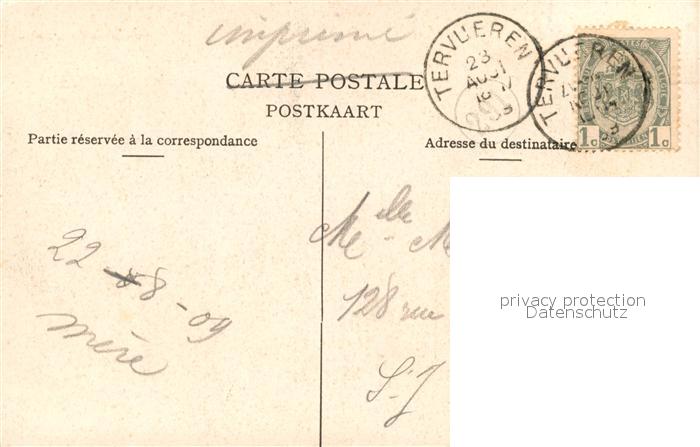 imprimé
CARTE POSTALE
POSTKAART
TERVUEREN
23
AOUT
TERVUEREN
1c 1c
Partie réservée à la correspondance
Adresse du destinataire
Mlle - M
128 rue
S-J
22 - 8 - 09
mère
privacy protection
Datenschutz